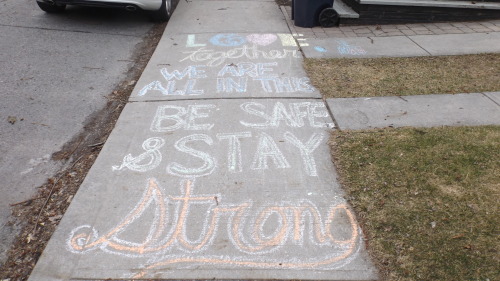 LOVE
together
WE ARE
ALL IN THIS
BE SAFE
& STAY
Strong